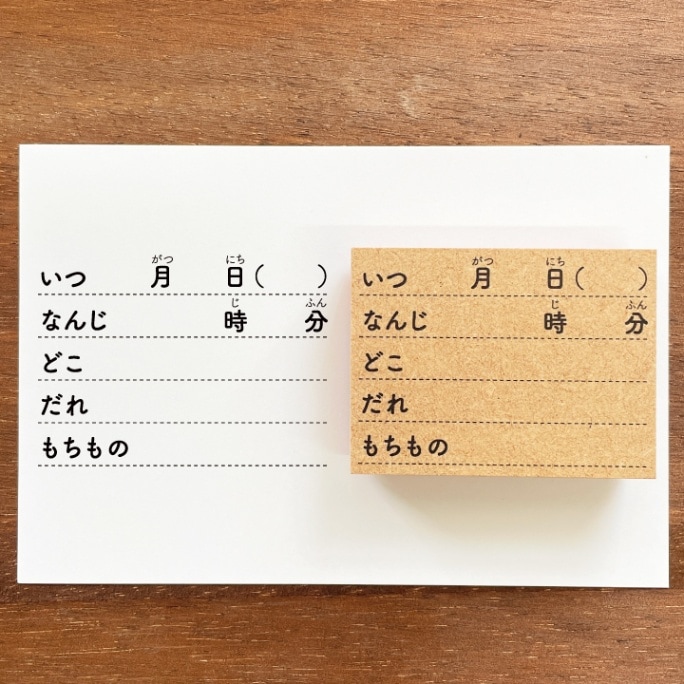 がつ にち
いつ 月 日( )
じ ふん
なんじ 時 分
どこ
だれ
もちもの
がつ にち
いつ 月 日( )
じ ふん
なんじ 時 分
どこ
だれ
もちもの